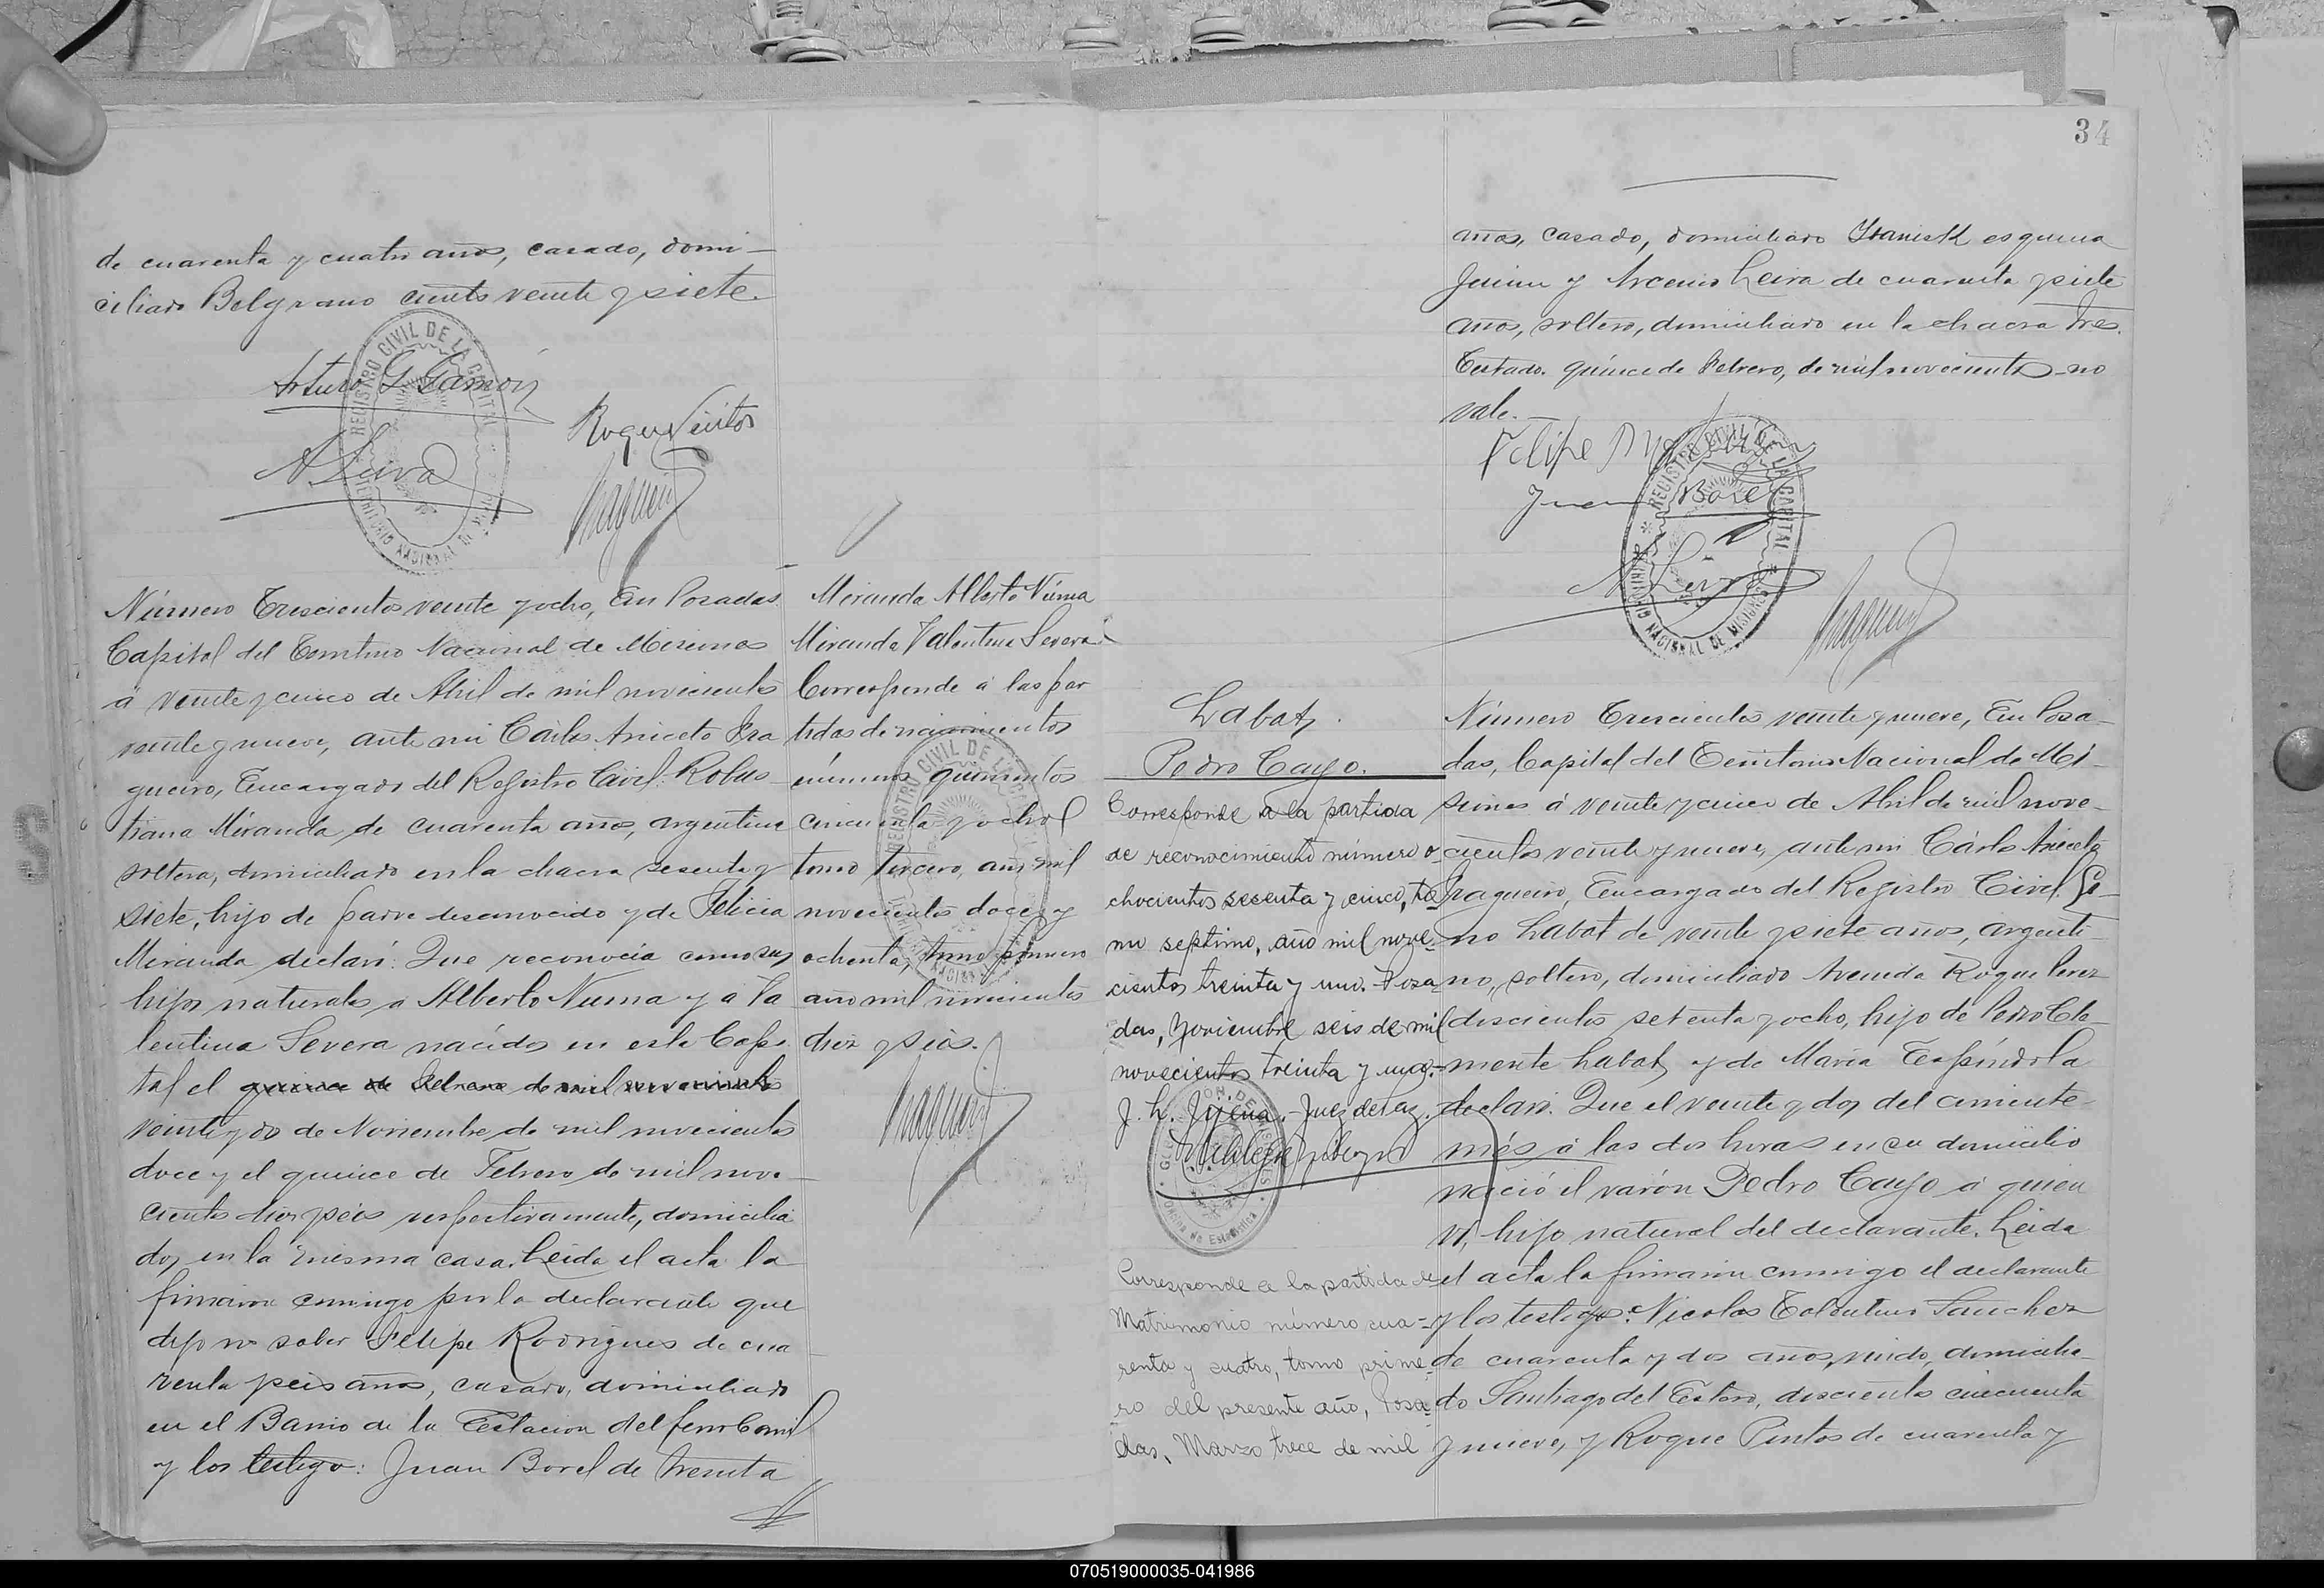 de cuarenta y cuatro años, casado, domi-
ciliado Belgrano ciento veinte y siete.
REGISTRO CIVIL DE LA CAPITAL
TERRITORIO NACIONAL DE
Arturo G. Gamón
A Leiva
Número Trescientos veinte y ocho, En Posadas
Capital del Territorio Nacional de Misiones
á veinte y cinco de Abril de mil novecientos
veinte y nueve, ante mi Cárlos Aniceto Fra
gueiro, Encargado del Registro Civil: Robus-
tiana Miranda de cuarenta años, argentina
soltera, domiciliado en la chacra sesenta y
siete, hijo de padre desconocido y de Felicia
Miranda declaró: Que reconocía como sus
hijos naturales a Alberto Numa y a Va
lentina Severa nacidos en esta Capi-
tal el quince de Febrero de mil novecientos
veinte y dos de Noviembre de mil novecientos
doce y el quince de Febrero de mil nove-
cientos diez y seis respectivamente, domicilia
dos en la misma casa. Leida el acta la
firmaron conmigo por la declarante que
dijo no saber Felipe Rodrigues de cua
renta y seis años, casado, domiciliado
en el Barrio de la Estacion del ferro Carril
y los testigo: Juan Borel de treinta
Miranda Alberto Núma
Miranda Valentina Severa
Corresponde á las par
tidas de nacimientos
números quinientos
cincuenta y ocho
tomo tercero, año mil
novecientos doce y
ochenta, tomo primero
año mil novecientos
diez y seis.
34
años, casado, domiciliado esquina
Junin y Arcenio Leiva de cuarenta y siete
años, soltero, domiciliado en la chacra tres.
Testado. quince de Febrero, de mil novecientos-no
vale.-
Felipe
Juan Borel
A Leiva
REGISTRO CIVIL DE LA CAPITAL
TERRITORIO NACIONAL DE MISIONES
Labat,
Pedro Cayo.
Corresponde a la partida
de reconocimiento número o-
chocientos sesenta y cinco, to
mo septimo, año mil nove-
cientos treinta y uno. Posa-
das, Noviembre seis de mil
novecientos treinta y uno.-
Juez de Paz.
Corresponde a la partida de
Matrimonio número cua-
renta y cuatro, tomo prime-
ro del presente año, Posa-
das, Marzo trece de mil
Número Trescientos veinte y nueve, En Posa-
das, Capital del Territorio Nacional de Mi-
siones á veinte y cinco de Abril de mil nove-
cientos veinte y nueve, ante mi Cárlos Aniceto
Fragueiro, Encargado del Registro Civil, Ge-
no Labat de veinte y siete años, argenti-
no, soltero, domiciliado Avenida Roque Perez
doscientos setenta y ocho, hijo de Pedro Cle-
mente Labat, y de María Espíndola
declaró: Que el veinte y dos del corriente-
més á las dos horas en su domicilio
nació el varón Pedro Cayo á quien
ví, hijo natural del declarante. Leida
el acta la firmaron conmigo el declarante
y los testigos: Nicolas Tolentino Sanchez
de cuarenta y dos años, viudo, domicilia-
do Santiago del Estero, doscientos cincuenta
y nueve, y Roque Pintos de cuarenta y
070519000035-041986